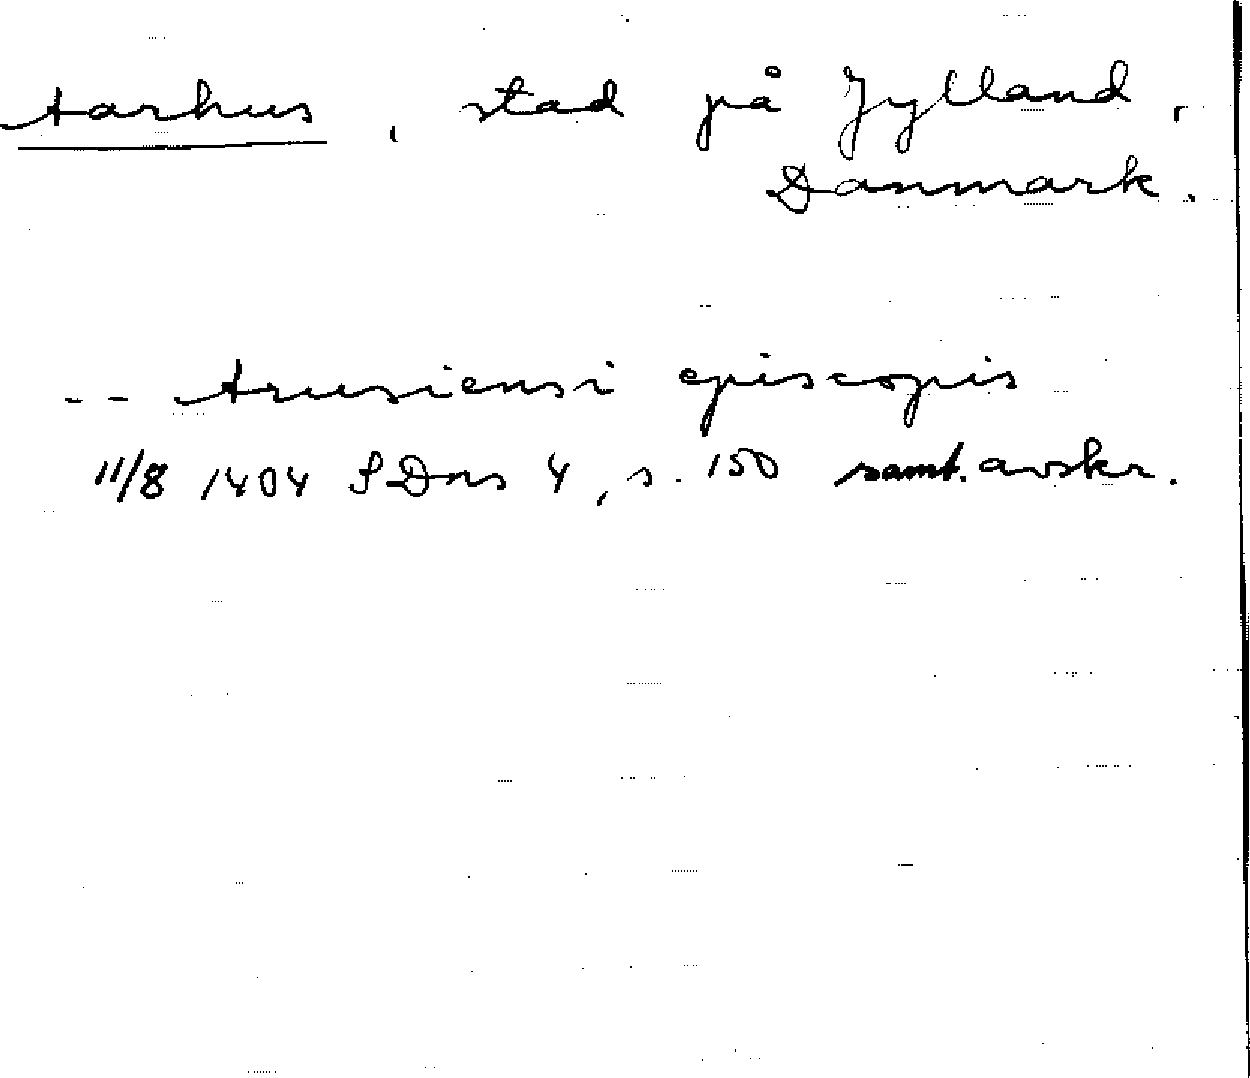 Aarhus, stad på Jylland,
Danmark.
-- Arusiensi episcopis
11/8 1404 SDns 4, s. 150 samt. avskr.